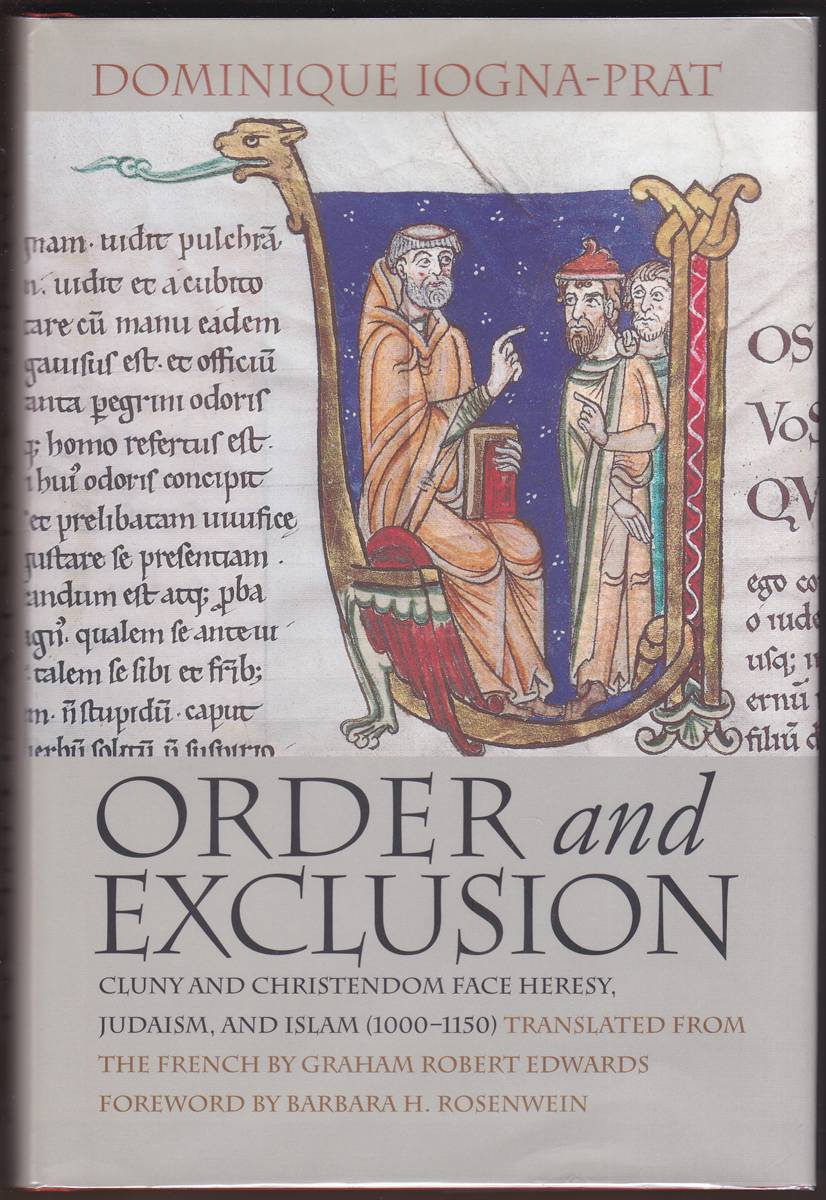 DOMINIQUE IOGNA-PRAT
gnam· uidit pulchrā
uidit et a cubito
tare cū manu eadem
gauisus est· et officiū
anta ꝑegrini odoris
q; homo refertus est·
odoris concipit
et prelibatam uiuifice
gustare se presentiam ·
andum est atq; ꝓba
qualem se ante
talem se sibi et fr̄ib;
n̄ stupidū· caput
OS
VOS
QV
ego co
o iude
usq;
ernū
filiū d
ORDER and
EXCLUSION
CLUNY AND CHRISTENDOM FACE HERESY,
JUDAISM, AND ISLAM (1000–1150) TRANSLATED FROM
THE FRENCH BY GRAHAM ROBERT EDWARDS
FOREWORD BY BARBARA H. ROSENWEIN